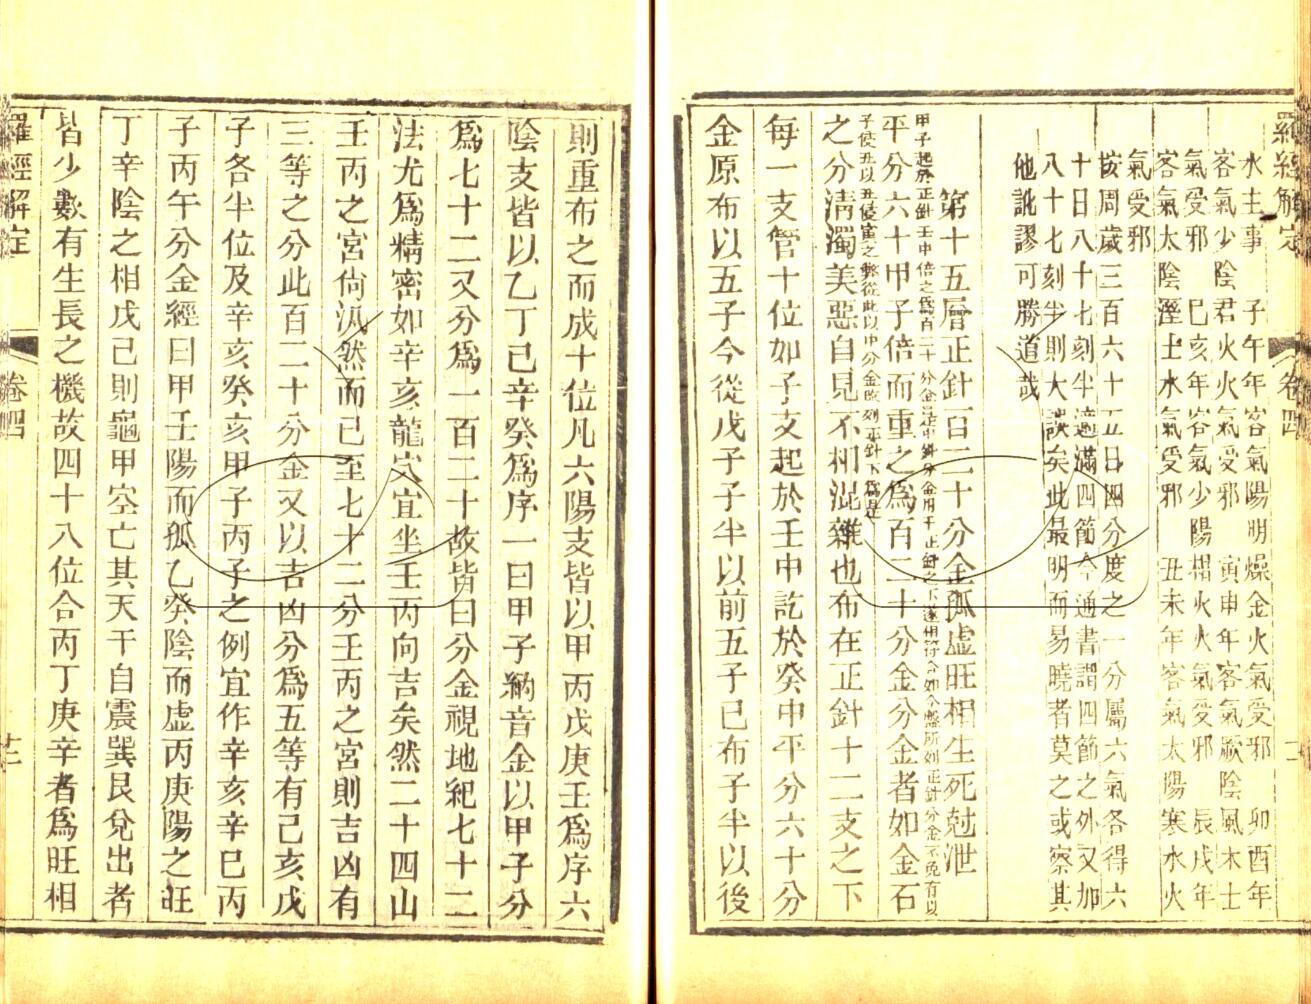 羅經解定 卷四
水主事 子午年客氣陽明燥金火氣受邪 卯酉年
客氣少陰君火火氣受邪 寅申年客氣厥陰風木土
氣受邪 巳亥年客氣少陽相火火氣受邪 辰戌年
客氣太陰溼土水氣受邪 丑未年客氣太陽寒水火
氣受邪
按周歲三百六十五日四分度之一分屬六氣各得六
十日八十七刻半適滿四節今通書謂四節之外又加
八十七刻半則大誤矣此最明而易曉者莫之或察其
他訛謬可勝道哉
第十五層正針百二十分金孤虛旺相生死尅泄
平分六十甲子倍而重之為百二十分金分金者如金石
之分清濁美惡自見不相混雜也布在正針十二支之下
每一支管十位如子支起於壬中訖於癸中平分六十分
金原布以五子今從戊子子半以前五子已布子半以後
則重布之而成十位凡六陽支皆以甲丙戊庚壬為序六
陰支皆以乙丁己辛癸為序一曰甲子納音金以甲子分
為七十二又分為一百二十故皆曰分金視地紀七十二
法尤為精密如辛亥龍定宜坐壬丙向吉矣然二十四山
壬丙之宮尚汎然而已至七十二分壬丙之宮則吉凶有
三等之分此百二十分金又以吉凶分為五等有己亥戊
子各半位及辛亥癸亥甲子丙子之例宜作辛亥辛巳丙
子丙午分金經曰甲壬陽而孤乙癸陰而虛丙庚陽之旺
丁辛陰之相戊己則龜甲空亡其天干自震巽艮兌出者
皆少數有生長之機故四十八位合丙丁庚辛者為旺相
羅經解定 卷四